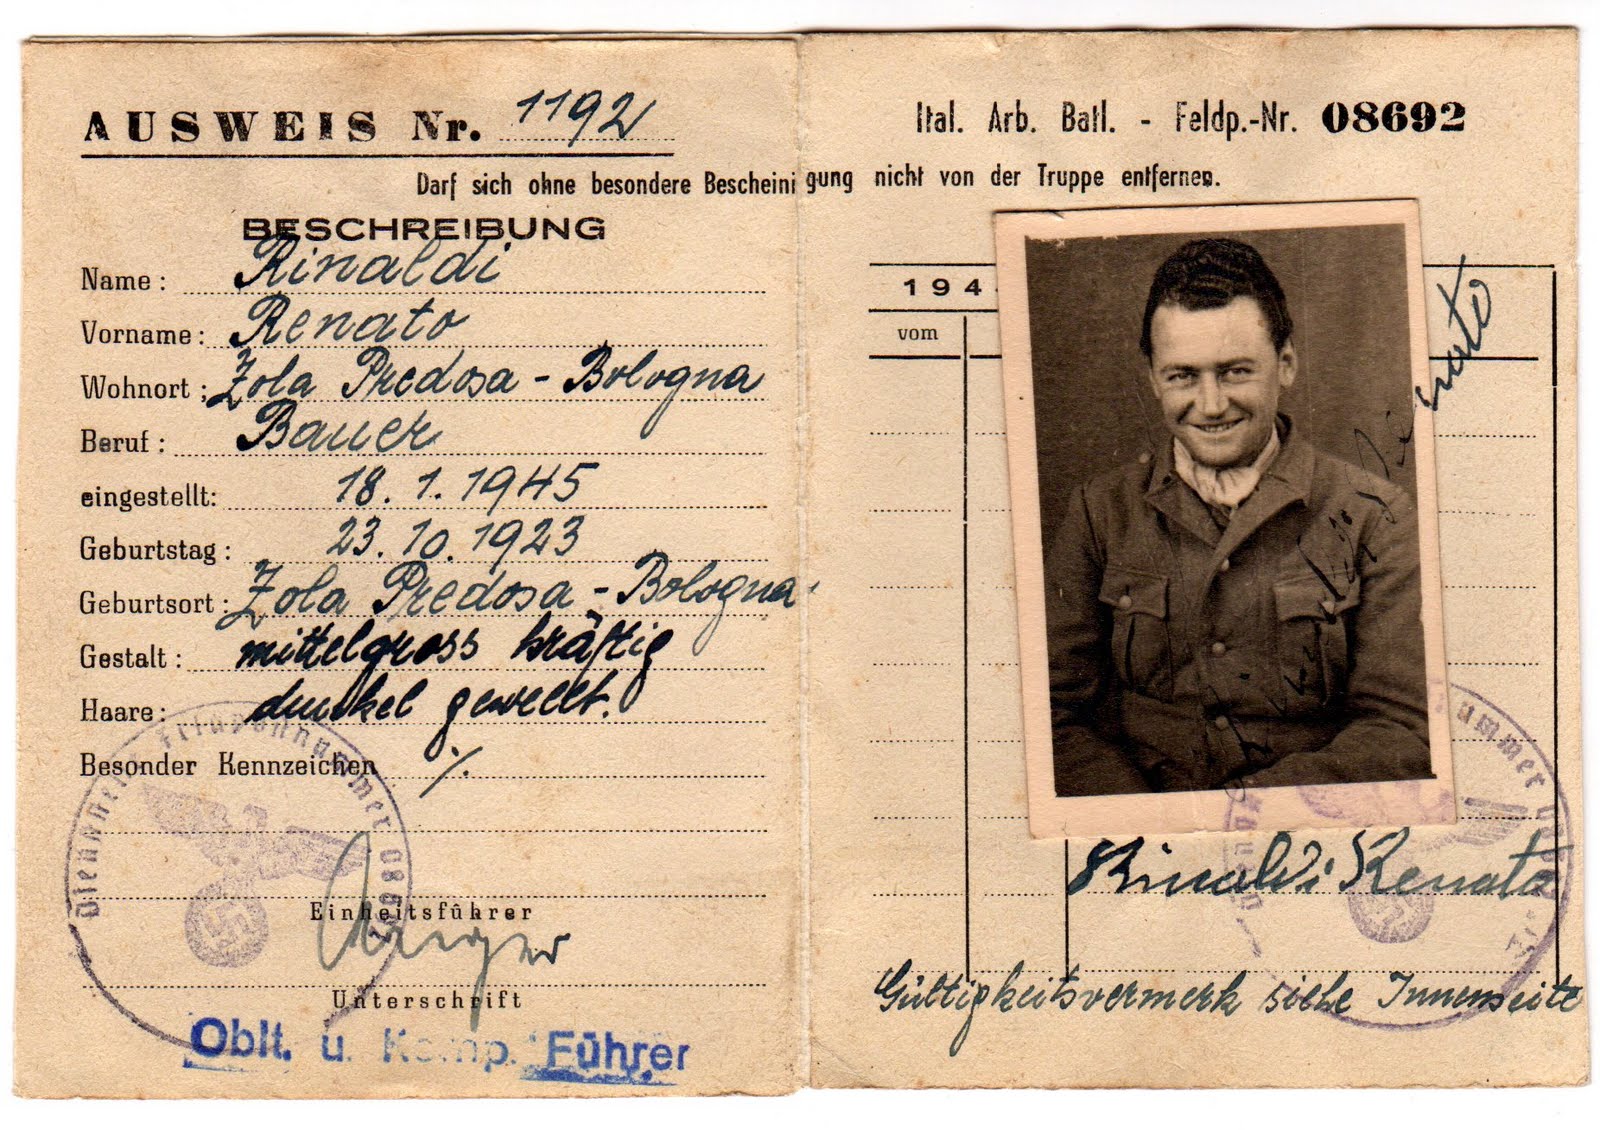 AUSWEIS Nr. 1192
Ital. Arb. Batl. - Feldp.-Nr. 08692
Darf sich ohne besondere Bescheinigung nicht von der Truppe entfernen.
BESCHREIBUNG
Name: Rinaldi
Vorname: Renato
Wohnort: Zola Predosa - Bologna
Beruf: Bauer
eingestellt: 18.1.1945
Geburtstag: 23.10.1923
Geburtsort: Zola Predosa - Bologna
Gestalt: mittelgross kräftig
Haare: dunkel gewellt.
Besonder Kennzeichen %.
Einheitsführer
Unterschrift
Oblt. u. Komp. Führer
Dienststelle Feldpostnummer 08692
194
vom
Rinaldi Renato
nummer
Rinaldi Renato
Gültigkeitsvermerk siehe Innenseite